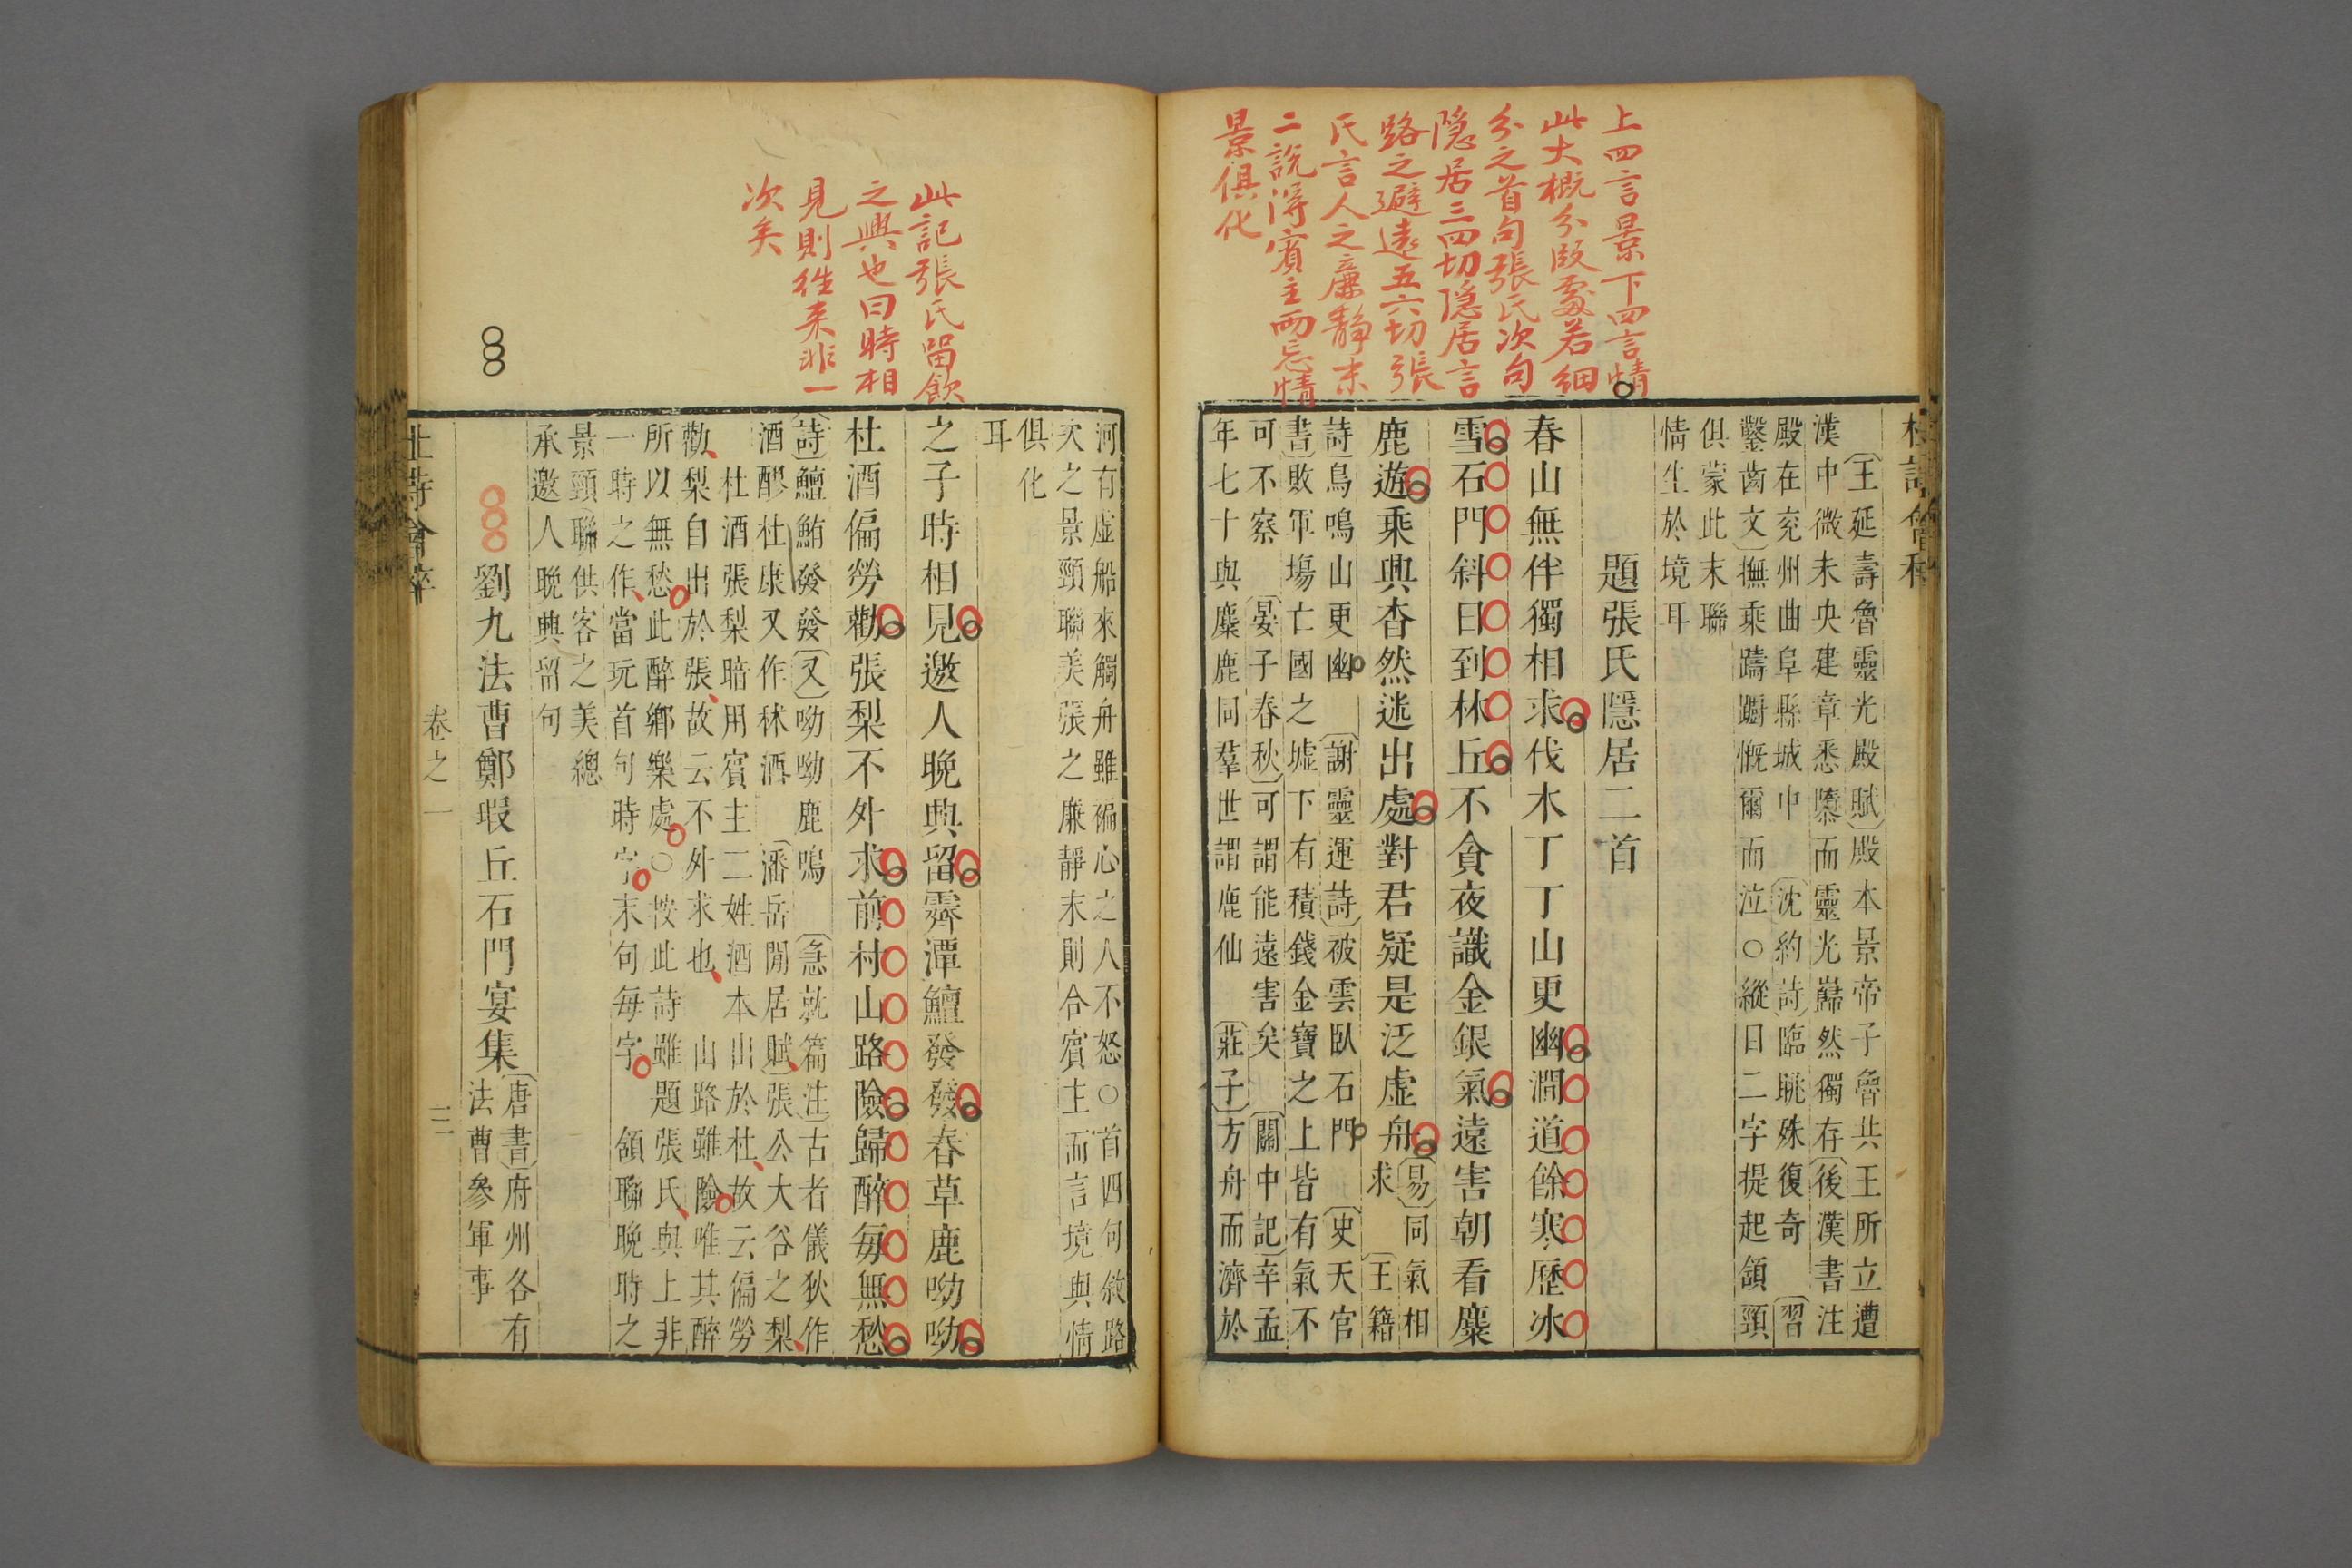 上四言景下四言情
此大概分段處若細
分之首句張氏次句
隱居三四切隱居言
路之避遠五六切張
氏言人之廉靜末
二說得賓主兩忘情
景俱化
王延壽魯靈光殿賦殿本景帝子魯共王所立遭
漢中微未央建章悉隳而靈光巋然獨存後漢書注
殿在兗州曲阜縣城中沈約詩臨眺殊復奇習
鑿齒文撫乘躊躕慨爾而泣○縱目二字提起頷頸
俱蒙此末聯
情生於境耳
題張氏隱居二首
春山無伴獨相求伐木丁丁山更幽澗道餘寒歷冰
雪石門斜日到林丘不貪夜識金銀氣遠害朝看麋
鹿遊乘興杳然迷出處對君疑是泛虛舟
易同氣相
求王籍
詩鳥鳴山更幽謝靈運詩被雲臥石門史天官
書敗軍場亡國之墟下有積錢金寶之上皆有氣不
可不察晏子春秋可謂能遠害矣關中記辛孟
年七十與麋鹿同羣世謂鹿仙莊子方舟而濟於
此記張氏留飲
之興也曰時相
見則往來非一
次矣
河有虛船來觸舟雖褊心之人不怒○首四句敘路
次之景頸聯美張之廉靜末則合賓主而言境與情
俱化
耳
之子時相見邀人晚興留霽潭鱣發發春草鹿呦呦
杜酒偏勞勸張梨不外求前村山路險歸醉每無愁
詩鱣鮪發發又呦呦鹿鳴急就篇注古者儀狄作
酒醪杜康又作秫酒潘岳閒居賦張公大谷之梨
杜酒張梨暗用賓主二姓酒本出於杜故云偏勞
勸梨自出於張故云不外求也山路雖險唯其醉
所以無愁此醉鄉樂處○按此詩雖題張氏與上非
一時之作當玩首句時字末句每字頷聯晚時之
景頸聯供客之美總
承邀人晚興留句
劉九法曹鄭瑕丘石門宴集
唐書府州各有
法曹參軍事
卷之一
三